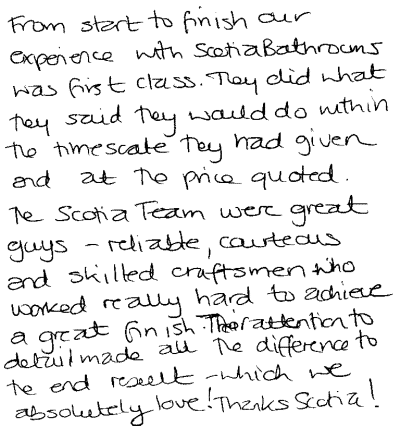 From start to finish our
experience with Scotia Bathrooms
was first class. They did what
they said they would do within
the timescale they had given
and at the price quoted.
The Scotia Team were great
guys - reliable, courteous
and skilled craftsmen who
worked really hard to achieve
a great finish. Their attention to
detail made all the difference to
the end result - which we
absolutely love! Thanks Scotia!